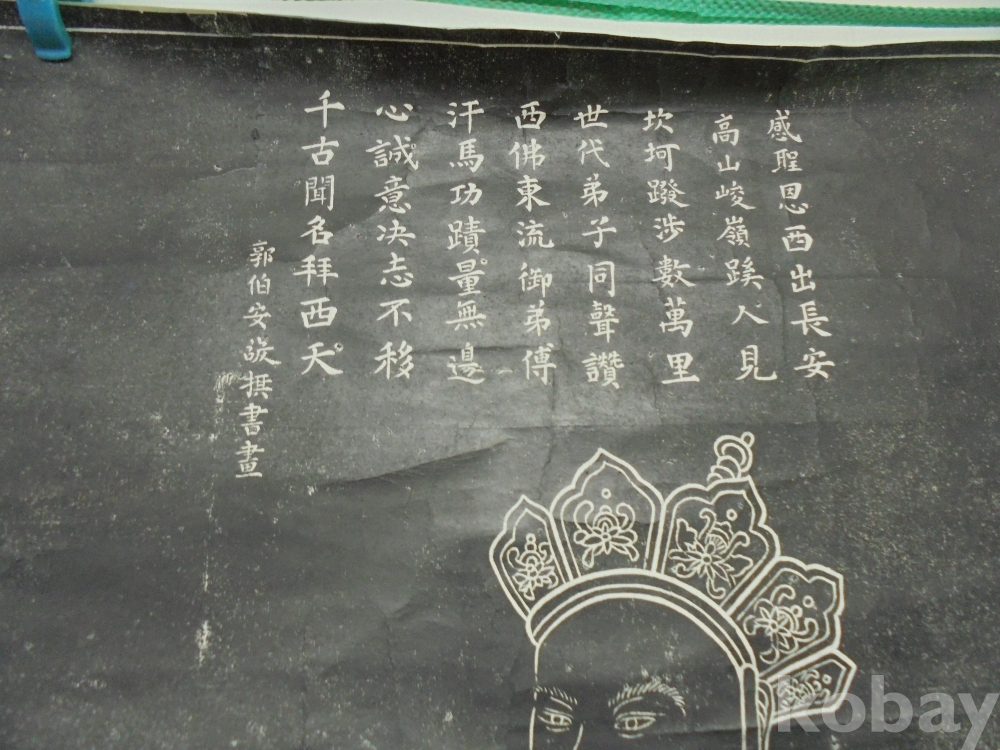 感聖恩西出長安
高山峻嶺蹊人見
坎坷蹳涉數萬里
世代弟子同聲讚
西佛東流御弟傅
汗馬功蹟量無邊
心誠意决志不移
千古聞名拜西天
郭伯安撰書畫
kobay